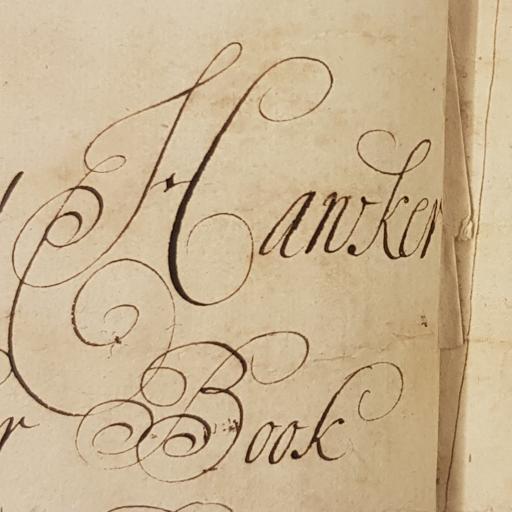 Hawker
r Book